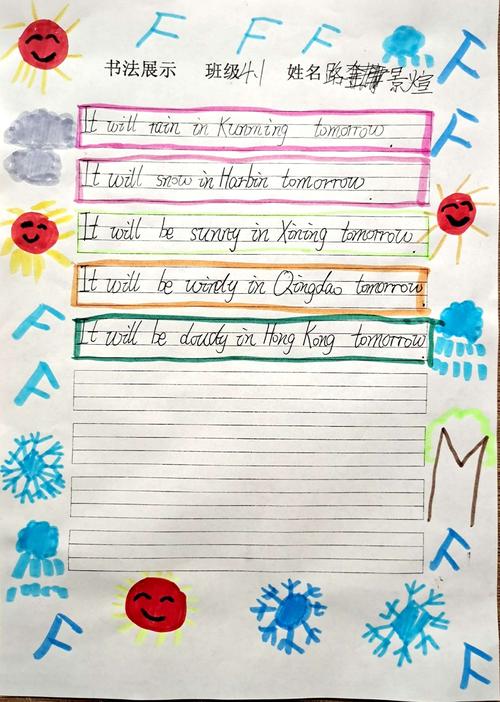 书法展示 班级4.1 姓名路景煊
It will rain in Kunming tomorrow.
It will snow in Harbin tomorrow.
It will be sunny in Xining tomorrow.
It will be windy in Qingdao tomorrow.
It will be cloudy in Hong Kong tomorrow.